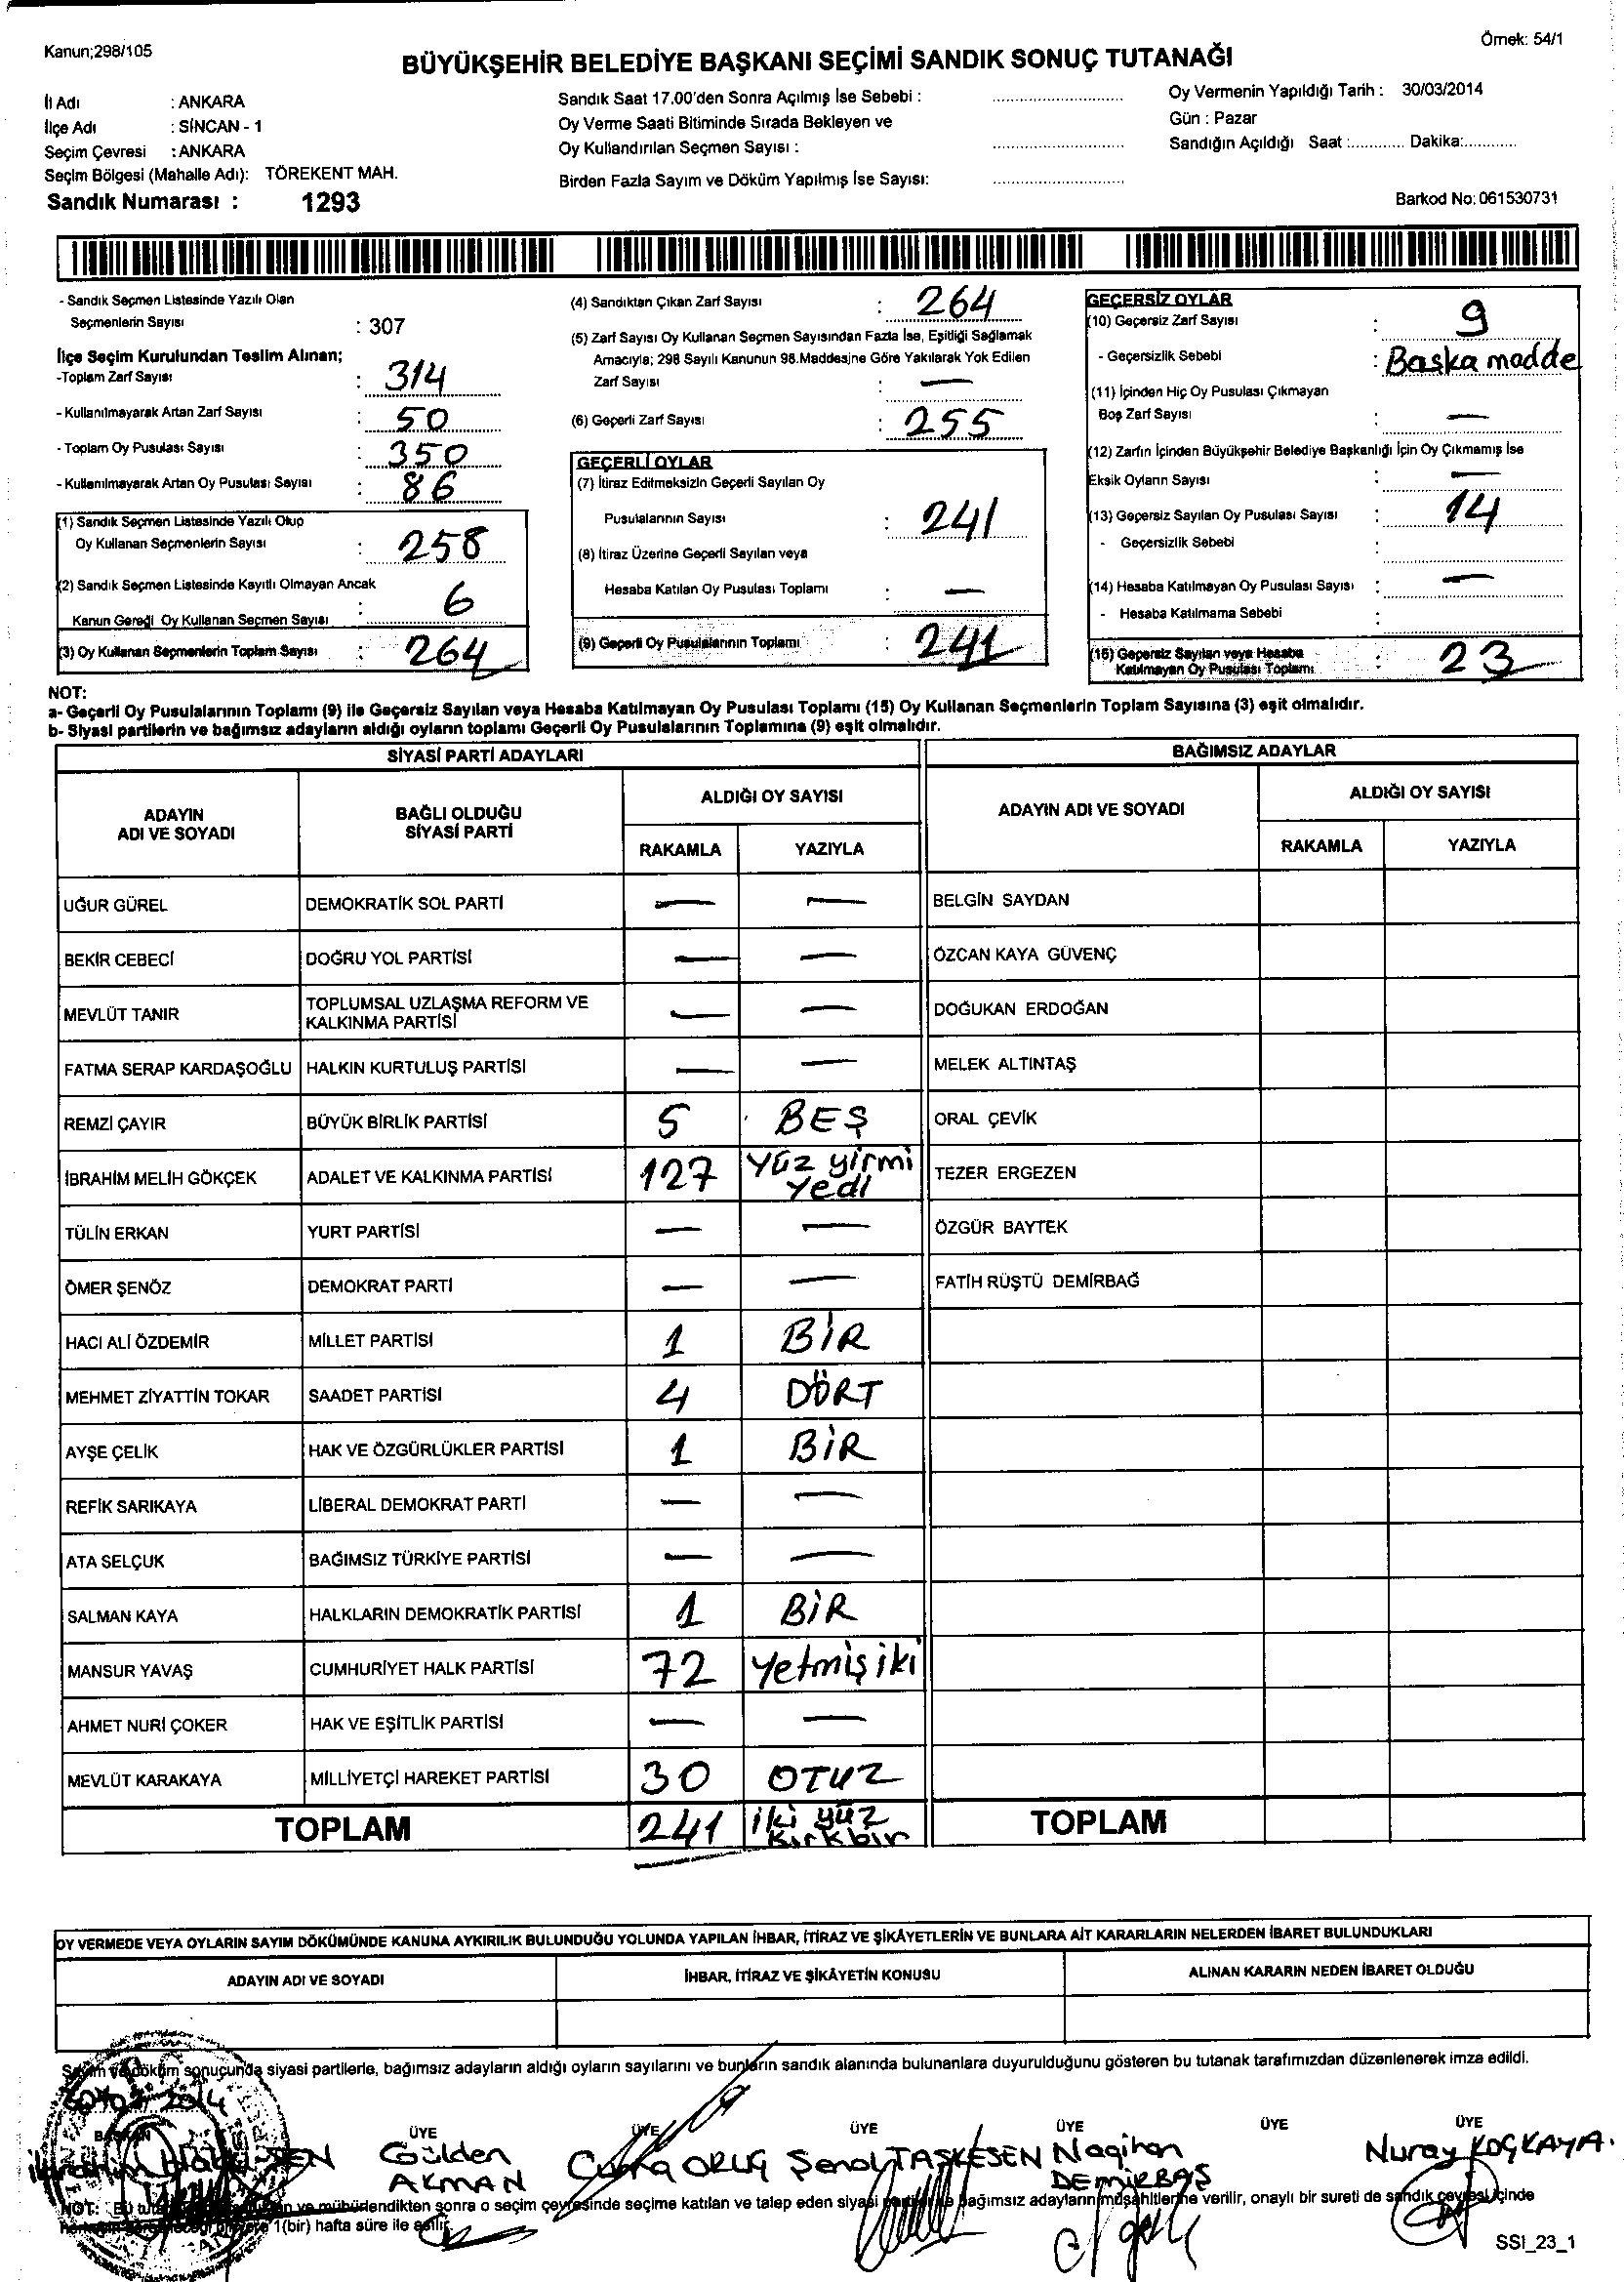 Kanun;298/105
Örnek: 54/1
BÜYÜKŞEHİR BELEDİYE BAŞKANI SEÇİMİ SANDIK SONUÇ TUTANAĞI
İl Adı : ANKARA
İlçe Adı : SİNCAN - 1
Seçim Çevresi : ANKARA
Seçim Bölgesi (Mahalle Adı): TÖREKENT MAH.
Sandık Numarası : 1293
Sandık Saat 17.00'den Sonra Açılmış İse Sebebi :
Oy Verme Saati Bitiminde Sırada Bekleyen ve
Oy Kullandırılan Seçmen Sayısı :
Birden Fazla Sayım ve Döküm Yapılmış İse Sayısı:
Oy Vermenin Yapıldığı Tarih : 30/03/2014
Gün : Pazar
Sandığın Açıldığı Saat :............ Dakika:............
Barkod No: 061530731
- Sandık Seçmen Listesinde Yazılı Olan
Seçmenlerin Sayısı : 307
İlçe Seçim Kurulundan Teslim Alınan;
-Toplam Zarf Sayısı : 314
- Kullanılmayarak Artan Zarf Sayısı : 50
- Toplam Oy Pusulası Sayısı : 350
- Kullanılmayarak Artan Oy Pusulası Sayısı : 86
(1) Sandık Seçmen Listesinde Yazılı Olup
Oy Kullanan Seçmenlerin Sayısı : 258
(2) Sandık Seçmen Listesinde Kayıtlı Olmayan Ancak
Kanun Gereği Oy Kullanan Seçmen Sayısı : 6
(3) Oy Kullanan Seçmenlerin Toplam Sayısı : 264
(4) Sandıktan Çıkan Zarf Sayısı : 264
(5) Zarf Sayısı Oy Kullanan Seçmen Sayısından Fazla İse, Eşitliği Sağlamak
Amacıyla; 298 Sayılı Kanunun 98.Maddesine Göre Yakılarak Yok Edilen
Zarf Sayısı : —
(6) Geçerli Zarf Sayısı : 255
GEÇERLİ OYLAR
(7) İtiraz Edilmeksizin Geçerli Sayılan Oy
Pusulalarının Sayısı : 241
(8) İtiraz Üzerine Geçerli Sayılan veya
Hesaba Katılan Oy Pusulası Toplamı : —
(9) Geçerli Oy Pusulalarının Toplamı : 241
GEÇERSİZ OYLAR
(10) Geçersiz Zarf Sayısı : 9
- Geçersizlik Sebebi : Başka madde
(11) İçinden Hiç Oy Pusulası Çıkmayan
Boş Zarf Sayısı : —
(12) Zarfın İçinden Büyükşehir Belediye Başkanlığı İçin Oy Çıkmamış İse
Eksik Oyların Sayısı : —
(13) Geçersiz Sayılan Oy Pusulası Sayısı : 14
- Geçersizlik Sebebi :
(14) Hesaba Katılmayan Oy Pusulası Sayısı : —
- Hesaba Katılmama Sebebi :
(15) Geçersiz Sayılan veya Hesaba
Katılmayan Oy Pusulası Toplamı : 23
NOT:
a- Geçerli Oy Pusulalarının Toplamı (9) ile Geçersiz Sayılan veya Hesaba Katılmayan Oy Pusulası Toplamı (15) Oy Kullanan Seçmenlerin Toplam Sayısına (3) eşit olmalıdır.
b- Siyasi partilerin ve bağımsız adayların aldığı oyların toplamı Geçerli Oy Pusulalarının Toplamına (9) eşit olmalıdır.
SİYASİ PARTİ ADAYLARI BAĞIMSIZ ADAYLAR
ADAYIN ADI VE SOYADI BAĞLI OLDUĞU SİYASİ PARTİ ALDIĞI OY SAYISI ADAYIN ADI VE SOYADI ALDIĞI OY SAYISI
RAKAMLA YAZIYLA RAKAMLA YAZIYLA
UĞUR GÜREL DEMOKRATİK SOL PARTİ — — BELGİN SAYDAN
BEKİR CEBECİ DOĞRU YOL PARTİSİ — — ÖZCAN KAYA GÜVENÇ
MEVLÜT TANIR TOPLUMSAL UZLAŞMA REFORM VE KALKINMA PARTİSİ — — DOĞUKAN ERDOĞAN
FATMA SERAP KARDAŞOĞLU HALKIN KURTULUŞ PARTİSİ — — MELEK ALTINTAŞ
REMZİ ÇAYIR BÜYÜK BİRLİK PARTİSİ 5 BEŞ ORAL ÇEVİK
İBRAHİM MELİH GÖKÇEK ADALET VE KALKINMA PARTİSİ 127 Yüz yirmi Yedi TEZER ERGEZEN
TÜLİN ERKAN YURT PARTİSİ — — ÖZGÜR BAYTEK
ÖMER ŞENÖZ DEMOKRAT PARTİ — — FATİH RÜŞTÜ DEMİRBAĞ
HACI ALİ ÖZDEMİR MİLLET PARTİSİ 1 BİR
MEHMET ZİYATTİN TOKAR SAADET PARTİSİ 4 DÖRT
AYŞE ÇELİK HAK VE ÖZGÜRLÜKLER PARTİSİ 1 BİR
REFİK SARIKAYA LİBERAL DEMOKRAT PARTİ — —
ATA SELÇUK BAĞIMSIZ TÜRKİYE PARTİSİ — —
SALMAN KAYA HALKLARIN DEMOKRATİK PARTİSİ 1 BİR
MANSUR YAVAŞ CUMHURİYET HALK PARTİSİ 72 Yetmiş iki
AHMET NURİ ÇOKER HAK VE EŞİTLİK PARTİSİ — —
MEVLÜT KARAKAYA MİLLİYETÇİ HAREKET PARTİSİ 30 OTUZ
TOPLAM 241 iki yüz kırkbir TOPLAM
OY VERMEDE VEYA OYLARIN SAYIM DÖKÜMÜNDE KANUNA AYKIRILIK BULUNDUĞU YOLUNDA YAPILAN İHBAR, İTİRAZ VE ŞİKÂYETLERİN VE BUNLARA AİT KARARLARIN NELERDEN İBARET BULUNDUKLARI
ADAYIN ADI VE SOYADI İHBAR, İTİRAZ VE ŞİKÂYETİN KONUSU ALINAN KARARIN NEDEN İBARET OLDUĞU
Sayım ve döküm sonucunda siyasi partilerle, bağımsız adayların aldığı oyların sayılarını ve bunların sandık alanında bulunanlara duyurulduğunu gösteren bu tutanak tarafımızdan düzenlenerek imza edildi.
BAŞKAN ÜYE ÜYE ÜYE ÜYE ÜYE ÜYE
İbrahim Gülden AKMAN Cuma ORUÇ Şenol TAŞKESEN Nagihan DEMİRBAŞ Nuray KOÇKAYA.
NOT: Bu ve mühürlendikten sonra o seçim çevresinde seçime katılan ve talep eden siyasi bağımsız adayların müşahitlerine verilir, onaylı bir sureti de sandık çevresi içinde
1(bir) hafta süre ile asılır.
SSI_23_1